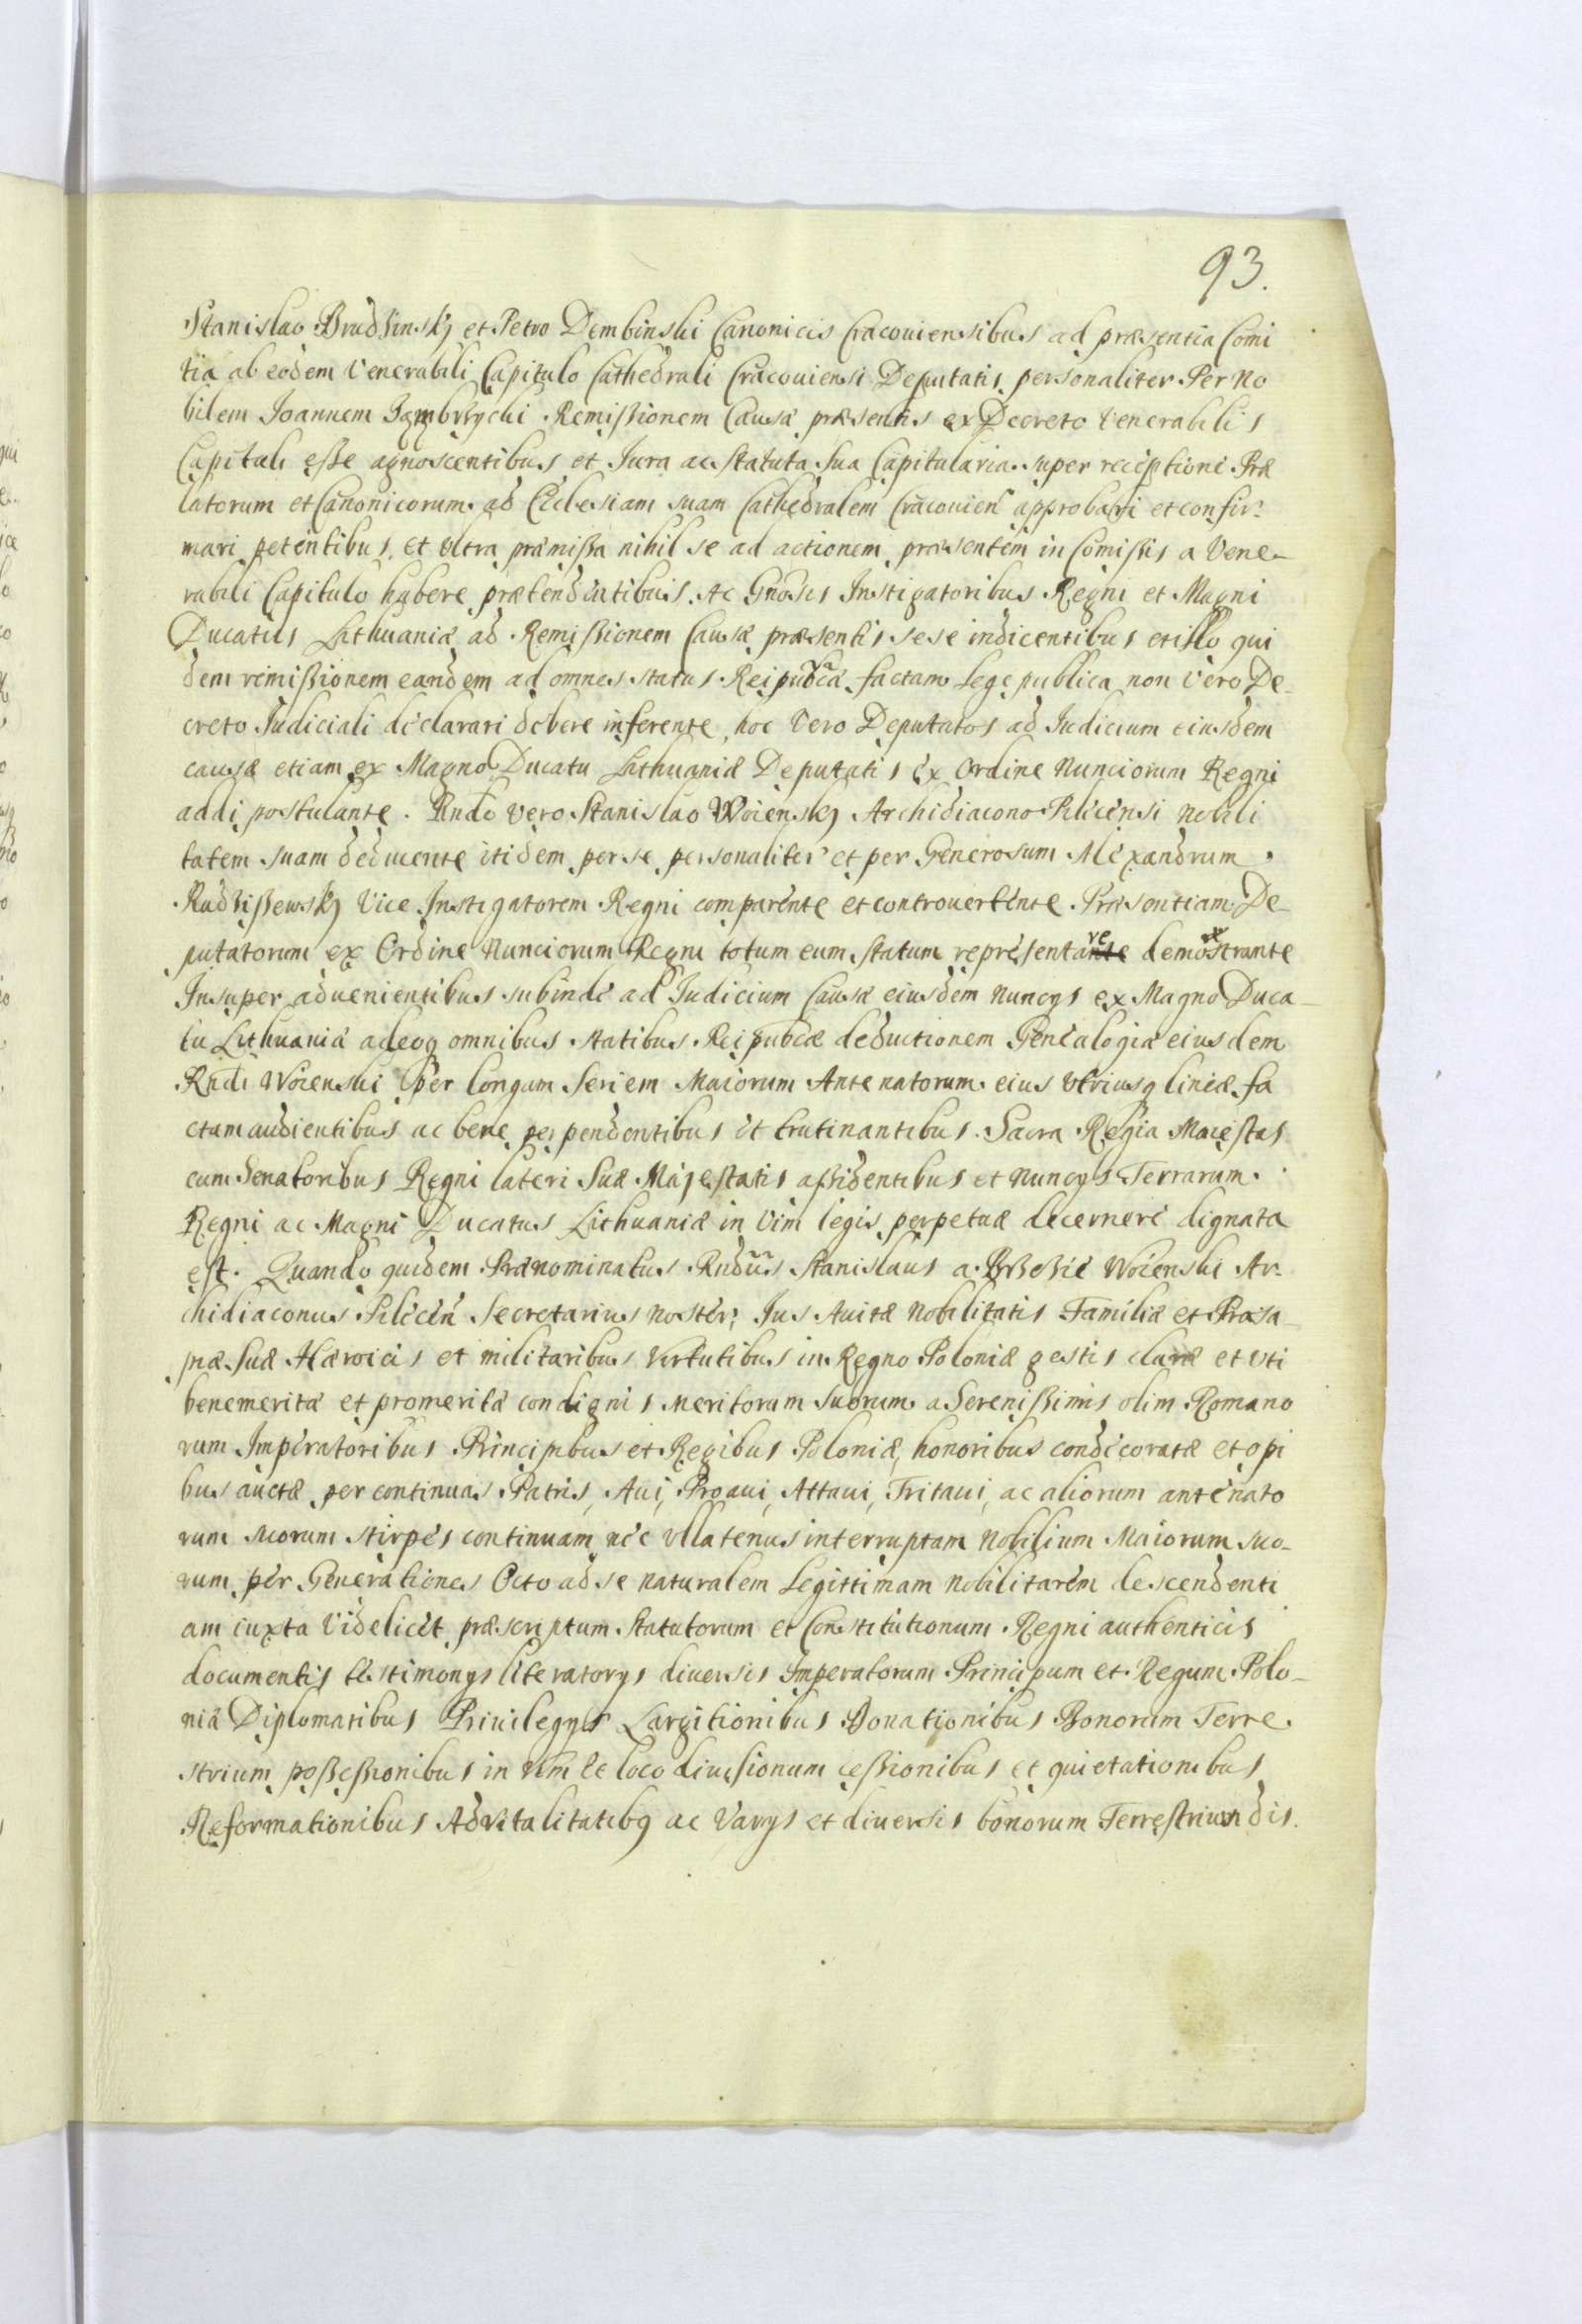 93.
Stanislao Brudzinskj et Petro Dembinski Canonicis Cracouiensibus ad præsentia Comi
tia ab eodem Venerabili Capitulo Cathedrali Cracouiensi Deputatis personaliter Per No
bilem Joannem Remißionem Causæ præsentis ex Decreto Venerabilis
Capituli eße agnoscentibus et Jura ac Statuta sua Capitularia super receptione Præ
latorum et Canonicorum ad Ecclesiam suam Cathedralem Cracouien approbari et confir
mari petentibus, et vltra præmißa nihil se ad actionem præsentem in Comißis a Vene-
rabili Capitulo habere prætendentibus. Ac Gnosis Instigatoribus Regni et Magni
Ducatus Lithuaniæ ad Remißionem Causæ præsentis sese indicentibus et isto qui
dem remißionem eandem ad omnes status Reipublcæ factam Lege publica non Vero De-
creto Judiciali declarari debere inferente, hoc Vero Deputatos ad Judicium eiusdem
causæ etiam ex Magno Ducatu Lithuaniæ Deputatis ex Ordine Nunciorum Regni
addi postulante. Rndo vero Stanislao Woienskj Archidiacono Pilicensi Nobili
tatem suam deducente itidem per se personaliter et per Generosum Alexandrum
Rudzißewskj Vice Instigatorem Regni comparente et controuertente. Præsentiam De-
putatorum ex Ordine Nunciorum Regni totum eum statum repręsentare demostrante
Insuper aduenientibus subinde ad Judicium Causæ eiusdem Nuncys ex Magno Duca-
tu Lithuaniæ adeoq omnibus statibus Reipublcæ deductionem Genealogiæ eiusdem
Rndi Woienski per longam Seriem Maiorum Antenatorum eius vtriusq lineæ fa
ctam audientibus ac bene perpendentibus et trutinantibus. Sacra Regia Maiestas
cum Senatoribus Regni lateri Suæ Majestatis aßidentibus et Nuncys Terrarum
Regni ac Magni Ducatus Lithuaniæ in Vim legis perpetuæ decernere dignata
est. Quando quidem Prænominatus Rndus Stanislaus a Brzezie Woienski Ar-
chidiaconus Pilicen Secretarius noster, Jus Auitæ Nobilitatis Familiæ et Prosa-
piæ Suæ Hæroicis et militaribus Virtutibus in Regno Poloniæ gestis claræ et vti
benemeritæ et promeritæ condignis Meritorum Suorum a Serenißimis olim Romano
rum Imperatoribus Principibus et Regibus Poloniæ, honoribus condecoratæ et opi
bus auctæ per continuas Patris, Aui, Proaui, Attaui, Tritaui, ac aliorum antenato
rum suorum stirpes continuam nec vllatenus interruptam Nobilium Maiorum suo-
rum per Generationes Octo ad se naturalem Legittimam Nobilitarem descendenti
am iuxta Videlicet præscriptum Statutorum et Constitutionum Regni authenticis
documentis testimonys literatorys diuersis Imperatorum Principum et Regum Polo-
niæ Diplomatibus Priuilegys Largitionibus Donationibus Bonorum Terre
strium poßeßionibus in vim et loco diuisionum ceßionibus et quietationibus
Reformationibus Aduitalitatibq ac Varys et diuersis bonorum Terrestrium dis.